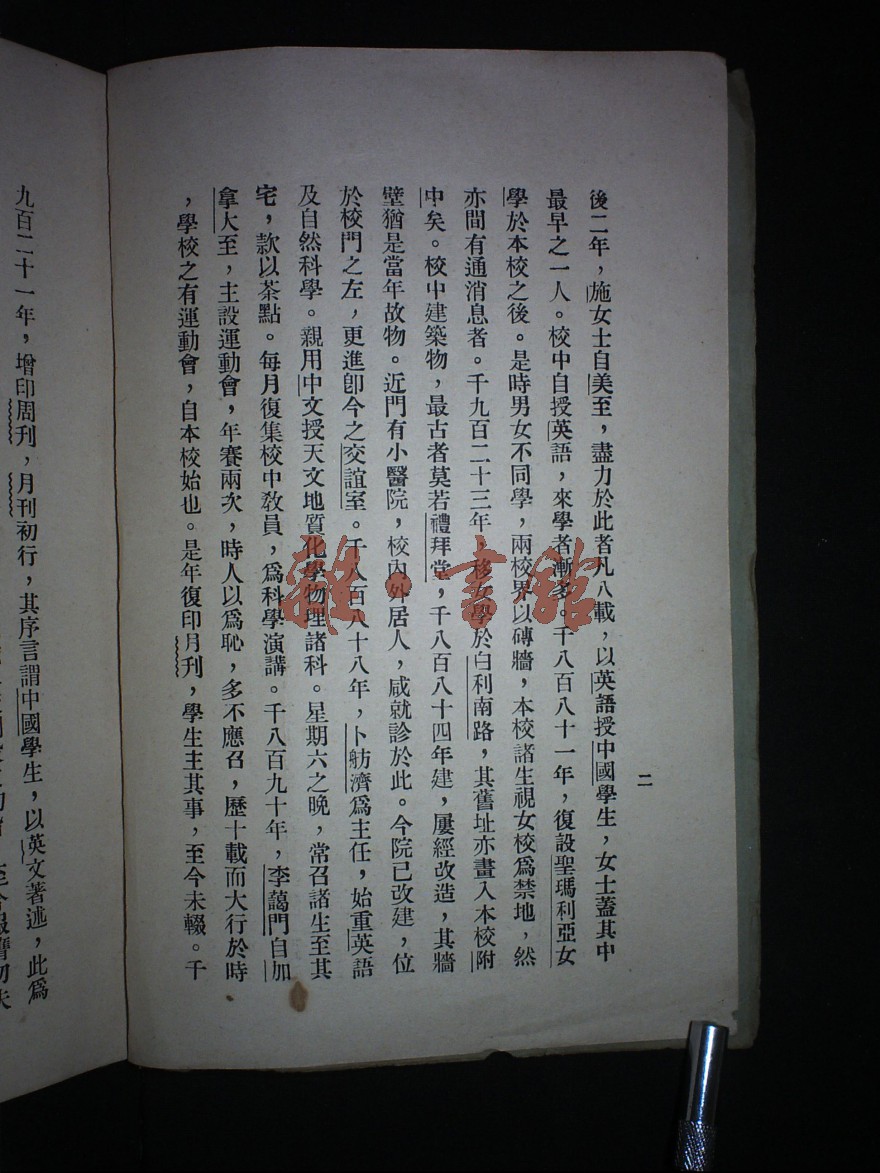 二
後二年，施女士自美至，盡力於此者凡八載，以英語授中國學生，女士蓋其中
最早之一人。校中自授英語，來學者漸多。千八百八十一年，復設聖瑪利亞女
學於本校之後。是時男女不同學，兩校界以磚牆，本校諸生視女校爲禁地，然
亦間有通消息者。千九百二十三年，移女學於白利南路，其舊址亦畫入本校附
中矣。校中建築物，最古者莫若禮拜堂，千八百八十四年建，屢經改造，其牆
壁猶是當年故物。近門有小醫院，校內外居人，咸就診於此。今院已改建，位
於校門之左，更進卽今之交誼室。千八百八十八年，卜舫濟爲主任，始重英語
及自然科學。親用中文授天文地質化學物理諸科。星期六之晚，常召諸生至其
宅，款以茶點。每月復集校中教員，爲科學演講。千八百九十年，李藹門自加
拿大至，主設運動會，年賽兩次，時人以爲恥，多不應召，歷十載而大行於時
，學校之有運動會，自本校始也。是年復印月刊，學生主其事，至今未輟。千
九百二十一年，增印周刊，月刊初行，其序言謂中國學生，以英文著述，此爲
雜·書館